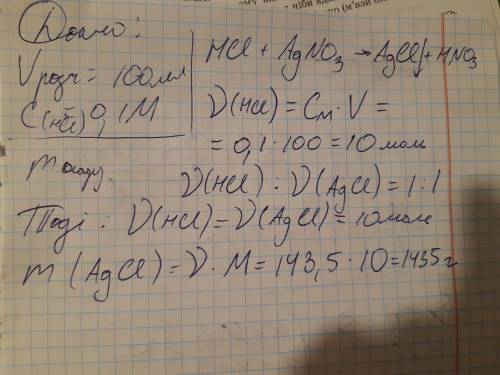 Дано:
Vрозч = 100мл
C(HCl) = 0,1M
m осаду
HCl + AgNO3 → AgCl↓ + HNO3
ν(HCl) = Cм · V =
= 0,1 · 100 = 10 моль
ν(HCl) : ν(AgCl) = 1:1
Тоді : ν(HCl) = ν(AgCl) = 10моль
m (AgCl) = ν · M = 143,5 · 10 = 1435 г